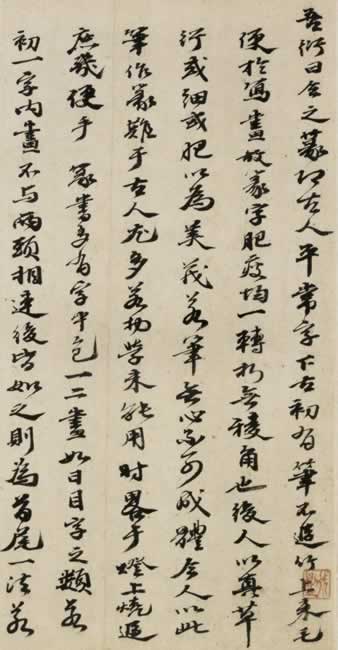 吾衍曰今之篆即古人平常字下古初有筆不過竹上束毛
便於寫畫故篆字肥瘦均一轉折無稜角也後人以真草
行或細或肥以為美茂若筆無心不可成體今人以此
筆作篆難于古人尤多若初學未能用時略于燈上燒過
庶幾便手 篆書多有字中包一二畫如日目字之類若
初一字內畫不与兩頭相連後皆如之則為首尾一法若